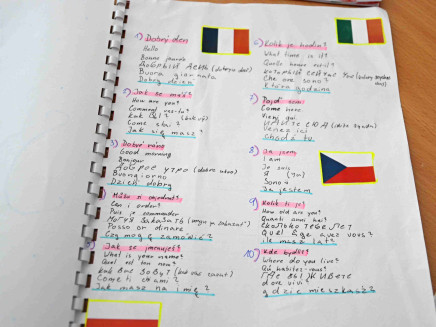 1) Dobrý den
Hello
Bonne journée
ДОБРЫЙ ДЕНЬ (dobryj den)
Buona giornata
Dzień dobry
2) Jak se máš?
How are you?
Comment vas-tu?
Come stai?
Jak się masz?
3) Dobré ráno
Good morning
Bonjour
ДОБРОЕ УТРО (dobroe utro)
Buongiorno
Dzień dobry
Můžu si objednat?
Can I order?
Puis-je commander
Posso ordinare
Czy mogę zamówić?
Jak se jmenuješ?
What is your name?
Quel est ton nom?
Как Вас ЗОВУТ
Come ti chiami?
Jak masz na imię?
6) Kolik je hodin?
What time is it?
Quelle heure est-il?
Che ore sono?
Która godzina
7) Pojď sem
Come here
Viens ici
ИДИТЕ СЮДА
Venga ici
Chodź tu
8) Já jsem
I am
Je suis
Я
Sono
Ja jestem
9) Kolik ti je?
How old are you?
Quanti anni hai?
СКОЛЬКО ТЕБЕ ЛЕТ
Quel âge avez vous?
ile masz lat?
10) Kde bydlíš?
Where do you live?
Où habitez-vous?
ГДЕ ВЫ ЖИВЕТЕ
dove vivi?
gdzie mieszkasz?